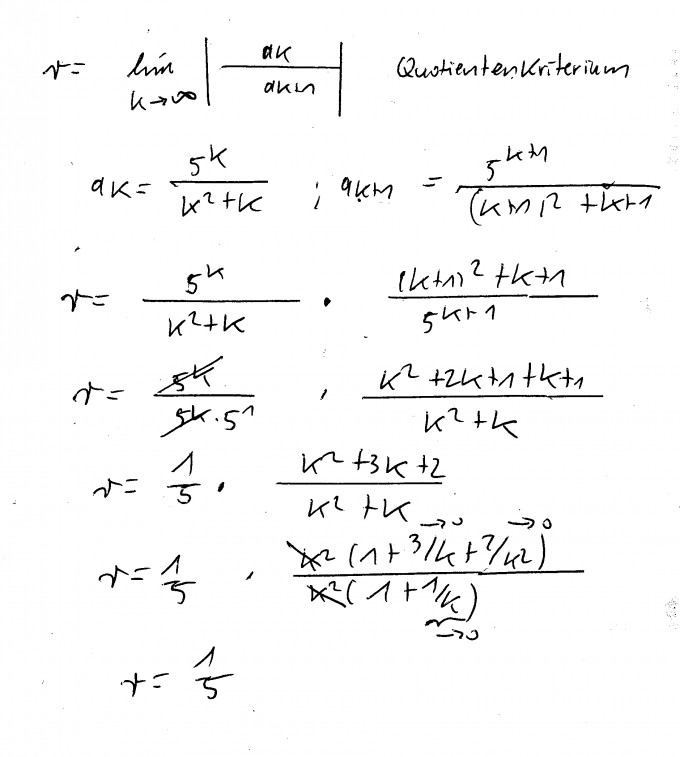 r = lim k→∞ | ak / ak+1 | Quotientenkriterium
ak = 5^k / (k²+k) ; ak+1 = 5^(k+1) / ((k+1)² + k+1)
r = 5^k / (k²+k) · ((k+1)² + k+1) / 5^(k+1)
r = 5^k / (5^k · 5^1) · (k² + 2k+1 + k+1) / (k² + k)
r = 1/5 · (k² + 3k + 2) / (k² + k)
→0 →0
r = 1/5 · k² (1 + 3/k + 2/k²) / (k² (1 + 1/k))
→0
r = 1/5